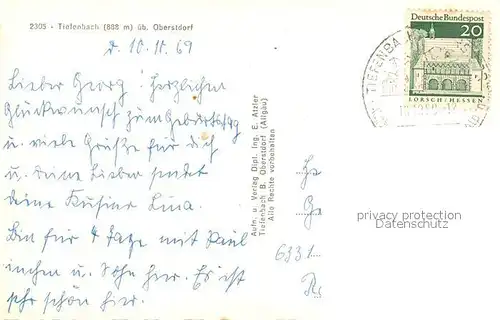 2305 - Tiefenbach (888 m) üb. Oberstdorf
d. 10.11.69
Lieber Georg! Herzlichen
Glückwunsch zum Geburtstag
u. viele Grüße für dich
u. deine Lieben sendet
deine Kusine Lina.
Bin für 4 Tage mit Paul
u. Sohn hier. Es ist
sehr schön hier.
Aufn. u. Verlag Dipl. Ing. E. Atzler
Tiefenbach B. Oberstdorf (Allgäu)
Alle Rechte vorbehalten
Deutsche Bundespost
20
LORSCH/HESSEN
TIEFENBA
He
Ge
privacy protection
Datenschutz
6331